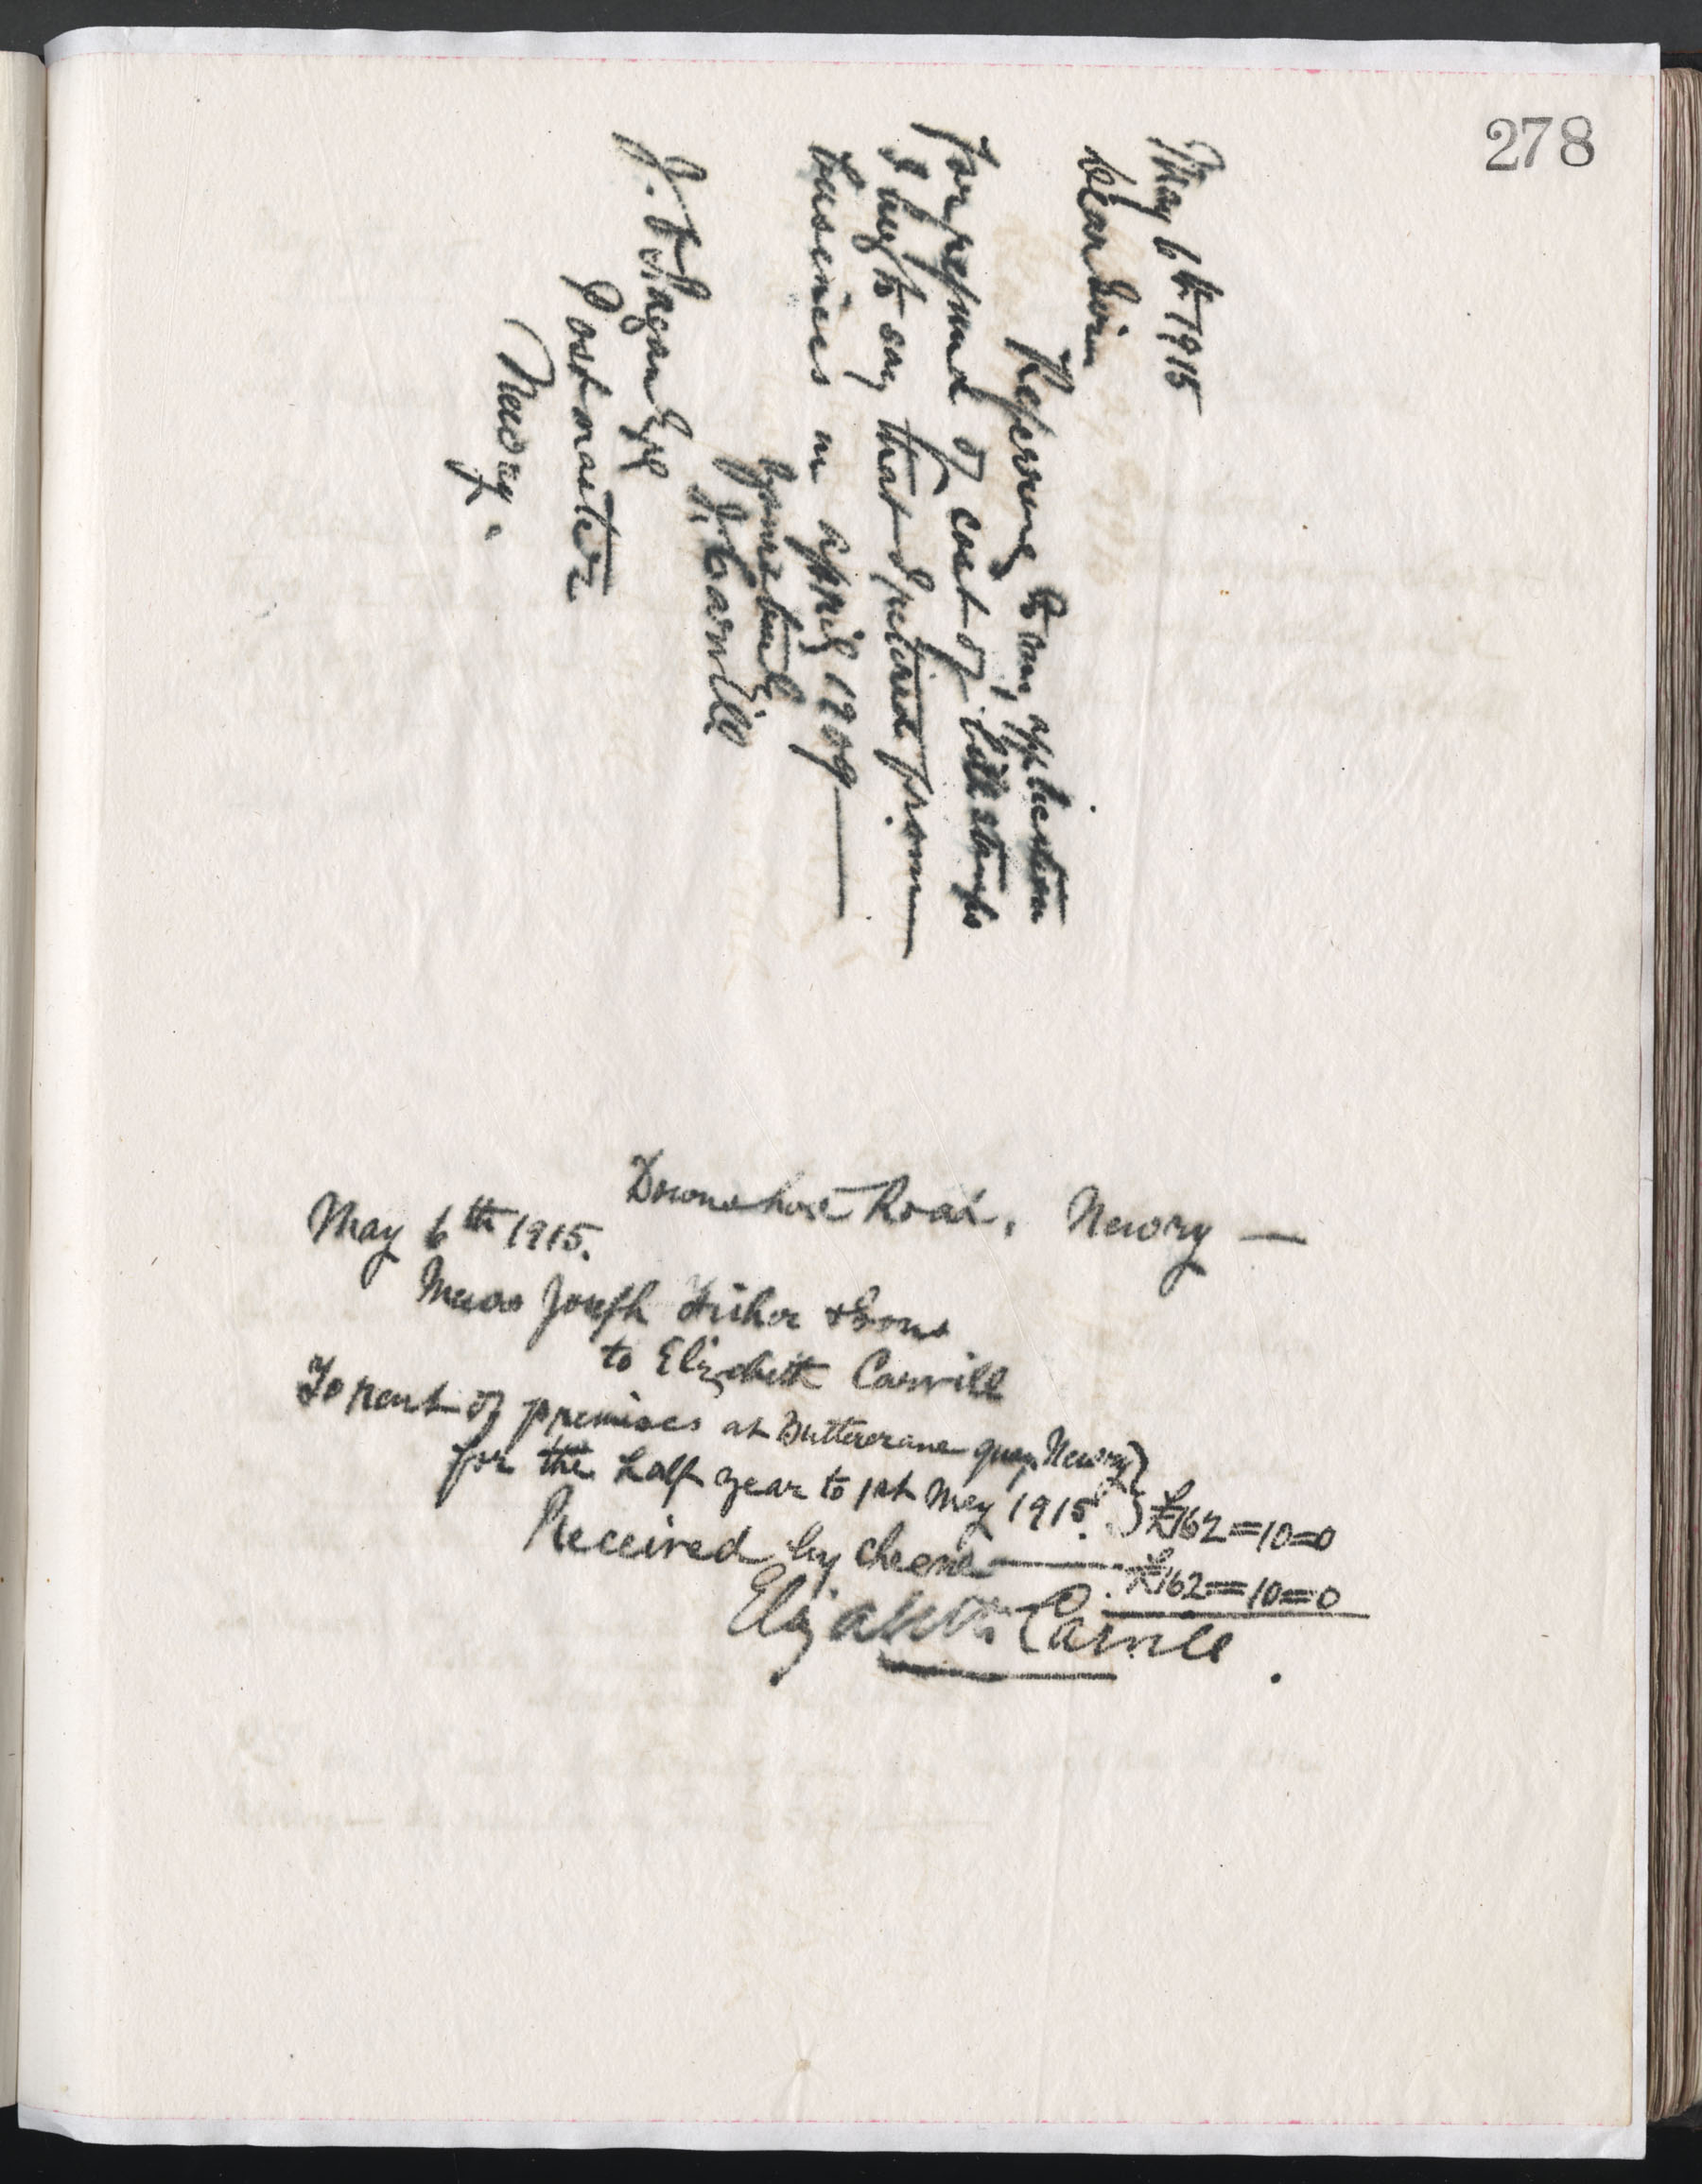 278
May 6th 1915
Dear Sir
Referring to my application
for refund of cost of bill stamps
I beg to say that I retired from
business in April 1909
Yours truly
J. Carvill
J. Fagan Esq
Postmaster
Newry.
Road, Newry —
May 6th 1915.
Messrs Joseph Fisher & Sons
to Elizabeth Carvill
To rent of premises at Buttercrane quay Newry
for the half year to 1st May 1915. £162=10=0
Received by cheque £162=10=0
Elizabeth Carvill